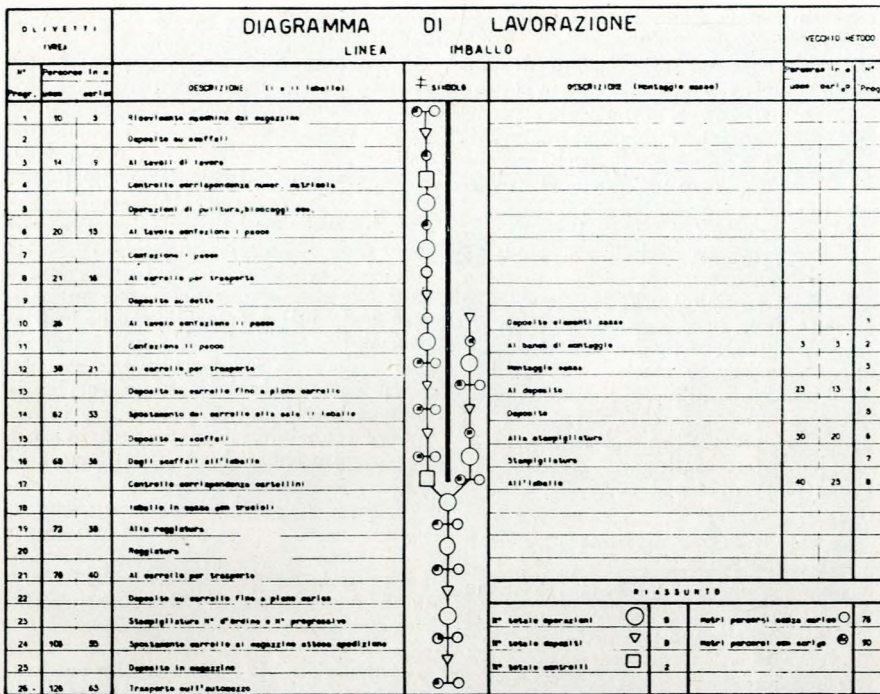 OLIVETTI
IVREA
DIAGRAMMA DI LAVORAZIONE
LINEA IMBALLO
VECCHIO METODO
N° Progr.
Percorso in m
uomo
DESCRIZIONE
SIMBOLO
DESCRIZIONE (Montaggio casse)
Percorso in m
uomo
N° Progr.
1 10 3 Ricevimento macchine dal magazzino
2 Deposito su scaffali
3 14 9 Ai tavoli di lavoro
4 Controllo corrispondenza numer. matricola
5 Operazioni di pulitura, bloccaggi ecc.
6 20 13 Al tavolo confezione I pacco
7 Confezione I pacco
8 21 16 Al carrello per trasporto
9 Deposito su detto
10 26 Al tavolo confezione II pacco
11 Confezione II pacco
12 38 21 Al carrello per trasporto
13 Deposito su carrello fino a pieno carrello
14 62 33 Spostamento del carrello alla sala II
15 Deposito su scaffali
16 68 36 Dagli scaffali
17 Controllo corrispondenza cartellini
18 in cassa con trucioli
19 72 38 Alla reggiatura
20 Reggiatura
21 76 40 Al carrello per trasporto
22 Deposito su carrello fino a pieno carico
23 Stampigliatura N° d'ordine e N° progressivo
24 106 Spostamento carrello al magazzino attesa spedizione
25 Deposito in magazzino
26 126 63 Trasporto sull'automezzo
Deposito elementi casse 1
Al banco di montaggio 3 3 2
Montaggio cassa 3
Al deposito 23 13 4
Deposito 5
Alla stampigliatura 30 20 6
Stampigliatura 7
40 25 8
RIASSUNTO
N° totale operazioni
Metri percorsi senza carico
N° totale depositi
Metri percorsi con carico 90
N° totale controlli 2